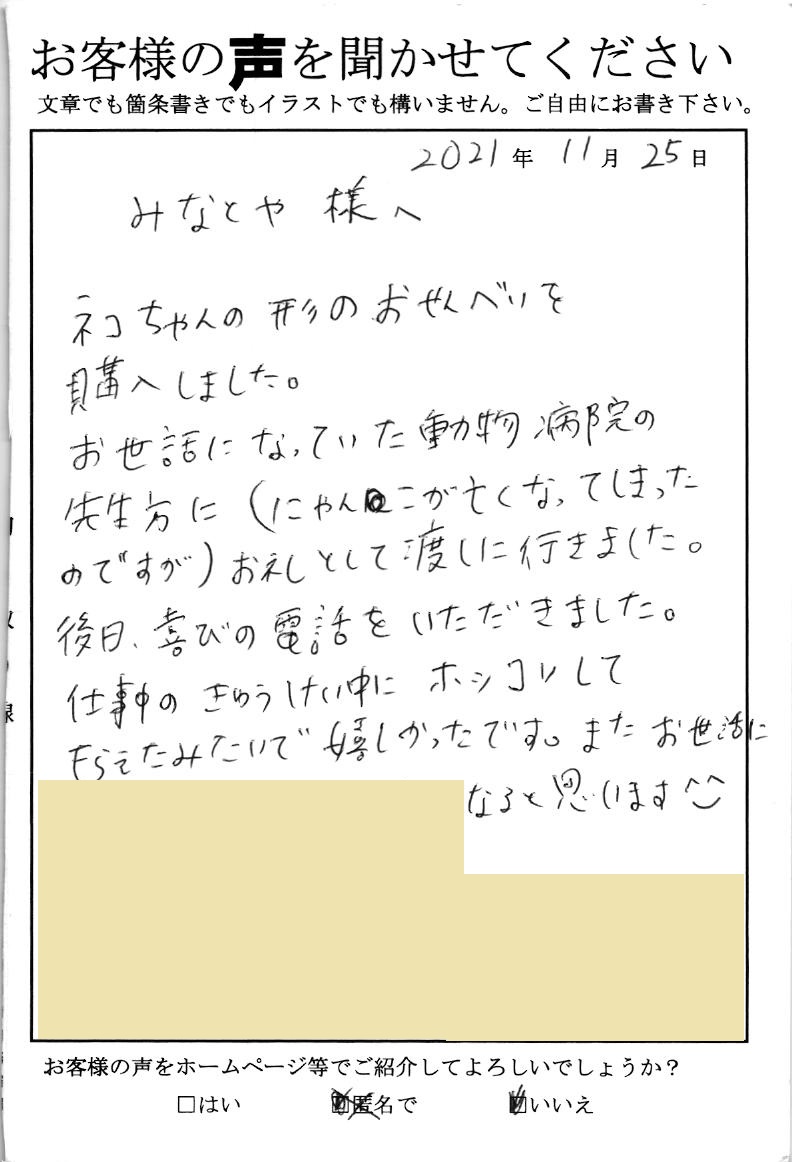 お客様の声を聞かせてください
文章でも箇条書きでもイラストでも構いません。ご自由にお書き下さい。
2021年 11月 25日
みなとや 様へ
ネコちゃんの 形の おせんべいを
購入しました。
お世話になっていた動物病院の
先生方に(にゃんこが亡くなってしまった
のですが)お礼として渡しに行きました。
後日、喜びの電話をいただきました。
仕事中の きゅうけい中に ホッコリして
もらえたみたいで 嬉しかったです。また お世話に
なると思います^^
お客様の声をホームページ等でご紹介してよろしいでしょうか?
□はい 匿名で いいえ